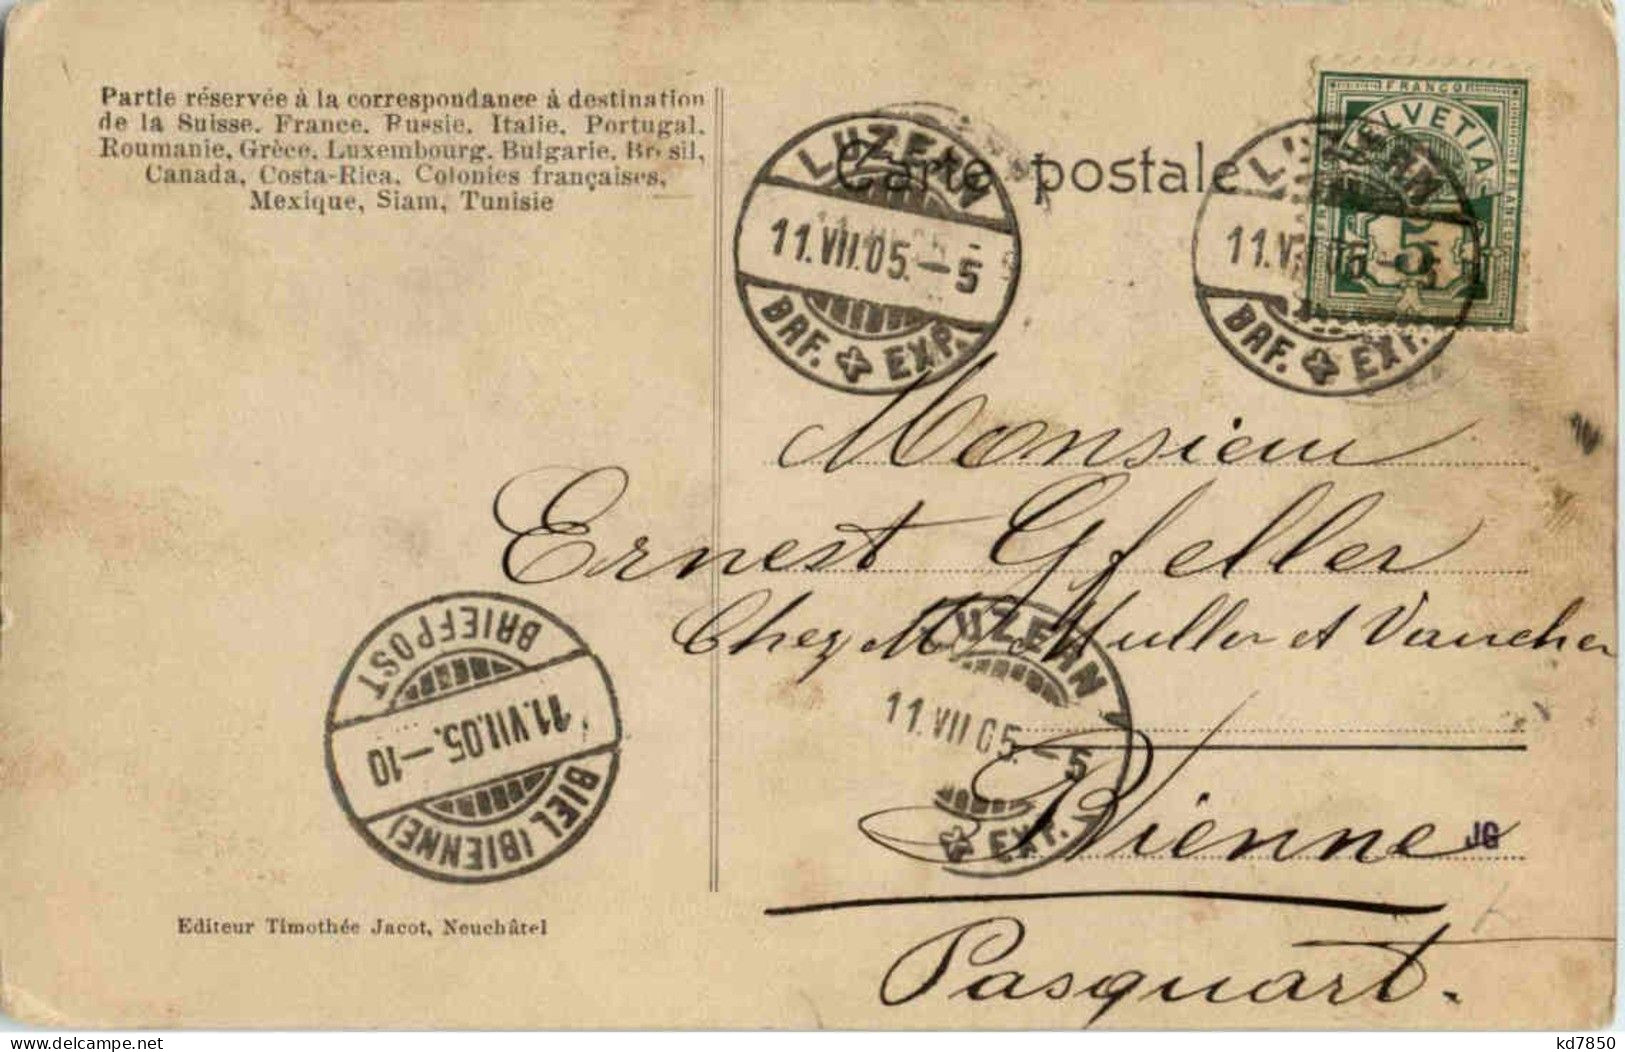 Partie réservée à la correspondance à destination
de la Suisse, France, Russie, Italie, Portugal,
Roumanie, Grèce, Luxembourg, Bulgarie, Brésil,
Canada, Costa-Rica, Colonies françaises,
Mexique, Siam, Tunisie
Carte postale
LUZERN
11.VII.05.-5
BRF. EXP.
FRANCO
HELVETIA
5
LUZERN
BRF. EXP.
Monsieur
Ernest Gfeller
Chez M. Muller et Vaucher
Bienne
JG
Pasquart.
LUZERN
11.VII 05.-5
EXP.
BRIEFPOST
11.VII.05.-10
BIEL (BIENNE)
Editeur Timothée Jacot, Neuchâtel
kd7850